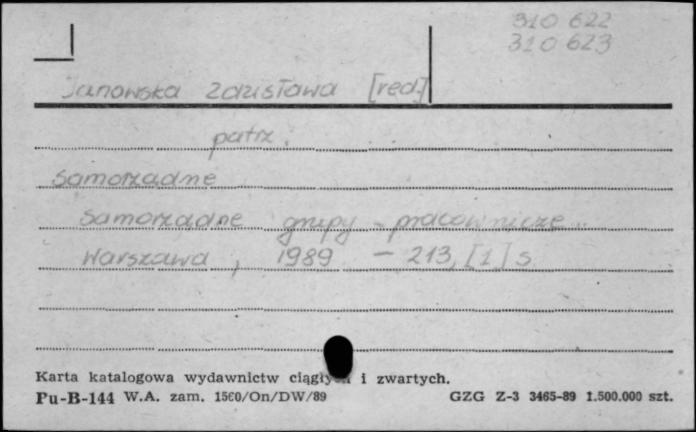 310 622
310 623
Janowska Zdzisława [red.]
patrz.
Samorządne
Samorządne grupy - pracownicze...
Warszawa, 1989 - 213, [1] s
Karta katalogowa wydawnictw ciągłych i zwartych.
Pu-B-144 W.A. zam. 1560/On/DW/89 GZG Z-3 3465-89 1.500.000 szt.